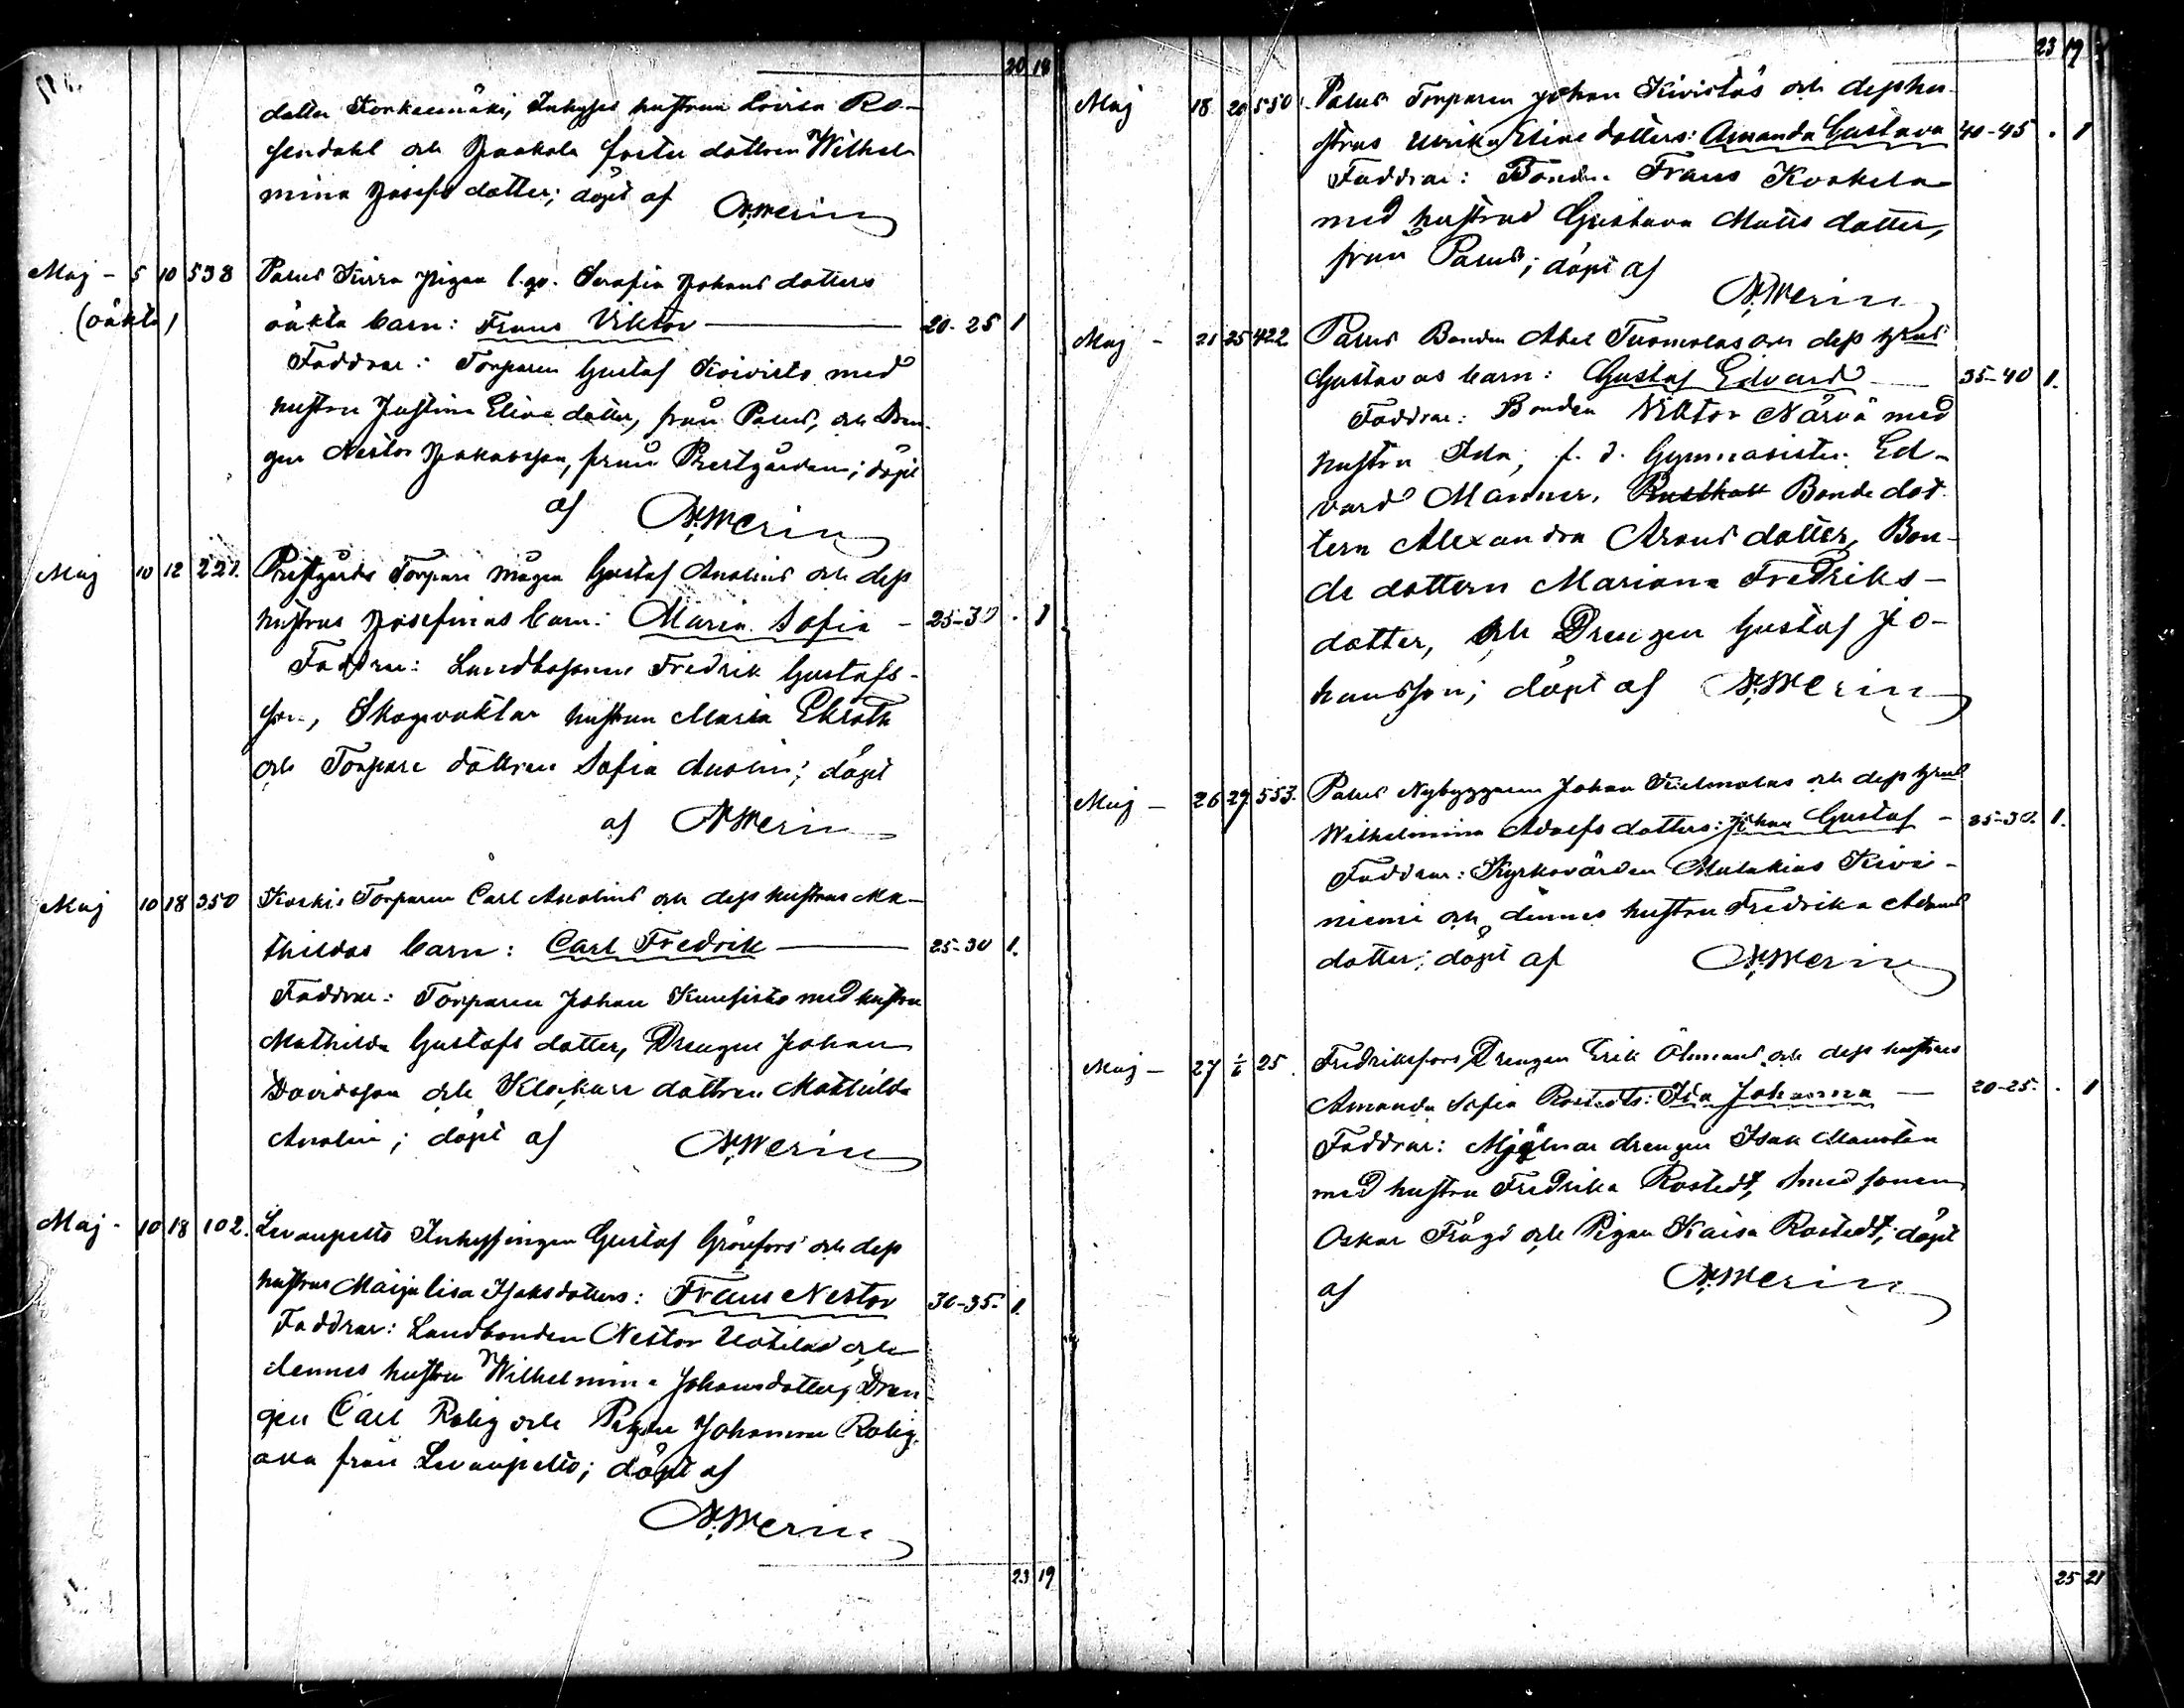 20 18
dotter Korkeemäki, Inhyses hustrun Lovisa Ro-
sendahl och Jaakola foster dottren Wilhel
mina Josefs dotter; döpt af N. Merin
Maj - 5 10 538 Palus Kirra pigan l. go. Serafia Johans dotters
(oäkta) oäkta barn: Frans Viktor 20-25 1
Faddrar: Torparen Gustaf Koivisto med
hustru Justina Elias dotter, från Palus, och Dren-
gen Nestor Jakobsson, från Prestgården; döpt
af N. Merin
Maj 10 12 221. Prestgårds Torpare mågen Gustaf Anolins och dess
hustrus Josefinas barn: Maria Sofia - 25-30 . 1
Faddrar: Landbosonen Fredrik Gustafs-
son, Skogvaktar hustrun Maria Ekroth
och Torpare dottren Sofia Anolin; döpt
af N. Merin
Maj 10 18 350 Koskis Torparen Carl Anolins och dess hustrus Ma-
thildas barn: Carl Fredrik 25-30 1.
Faddrar: Torparen Johan Kuusisto med hustru
Mathilda Gustafs dotter, Drengen Johan
Davidsson och Klockare dottren Mathilda
Anolin; döpt af N. Merin
Maj - 10 18 102. Levanpelto Inhysingen Gustaf Grönfors och dess
hustrus Maija Lisa Isaksdotters: Frans Nestor 30-35. 1.
Faddrar: Landbonden Nestor Uotila och
dennes hustru Wilhelmina Johansdotter, Dren-
gen Carl Rolig och Pigan Johanna Rolig,
alla från Levanpelto; döpt af
N. Merin
23 19
23 19
Maj 18 20 550. Palus Torparen Johan Kivistös och dess hu-
strus Ulrika Elias dotters: Amanda Gustava 40-45 . 1
Faddrar: Bonden Frans Kvakela
med hustru Gustava Matts dotter,
från Palus; döpt af
N. Merin
Maj - 21 25 422 Palus Bonden Abel Tuomolas och dess hustrus
Gustavas barn: Gustaf Edvard 35-40 1.
Faddrar: Bonden Viktor Närvä med
hustru Ida, f. d. Gymnasisten Ed-
vard Manner, Bonde dot-
tern Alexandra Arons dotter, Bon-
de dottern Mariana Fredriks-
dotter, och Drengen Gustaf Jo-
hansson; döpt af N. Merin
Maj - 26 29 553. Palus Nybyggaren Johan och dess hustrus
Wilhelmina Adolfs dotters: Johan Gustaf - 25-30. 1.
Faddrar: Kyrkovärden Malakias Kivi-
niemi och dennes hustru Fredrika Adams
dotter; döpt af N. Merin
Maj - 27 1/6 25. Fredriksfors Drengen Erik Öhmans och dess hustrus
Amanda Sofia Rostedts: Ida Johanna - 20-25. . 1
Faddrar: Mjölnar drengen Isak Manstén
med hustru Fredrika Rostedt, Smed sonen
Oskar Frögd och Pigan Kaisa Rostedt; döpt
af N. Merin
25 21